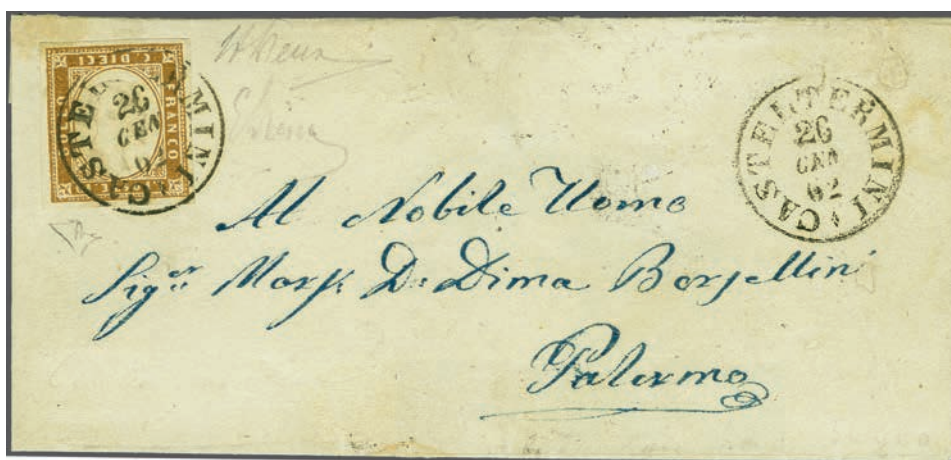 C. DIECI
FRANCO
CASTEL TERMINI
26
GEN
62
CASTELTERMINI
26
GEN
62
Al Nobile Uomo
Sig.r Mar D. Dima Borsellini
Palermo